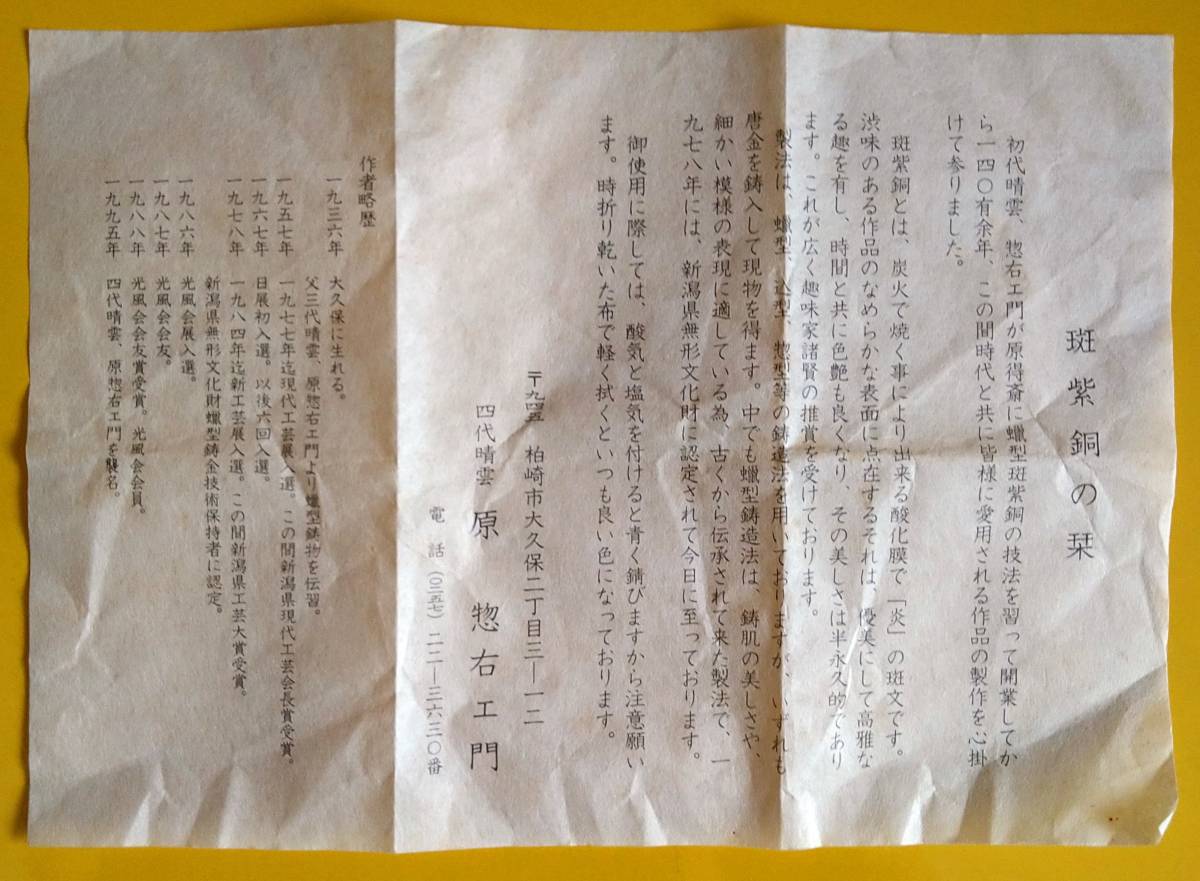 斑紫銅の栞
初代晴雲、惣右エ門が原得斎に蠟型斑紫銅の技法を習って開業してか
ら一四〇有余年、この間時代と共に皆様に愛用される作品の製作を心掛
けて参りました。
斑紫銅とは、炭火で焼く事により出来る酸化膜で「炎」の斑文です。
渋味のある作品のなめらかな表面に点在するそれは、優美にして高雅な
る趣を有し、時間と共に色艶も良くなり、その美しさは半永久的であり
ます。これが広く趣味家諸賢の推賞を受けております。
製法は、蠟型、込型、惣型等の鋳造法を用いておりますが、いずれも
唐金を鋳入して現物を得ます。中でも蠟型鋳造法は、鋳肌の美しさや、
細かい模様の表現に適している為、古くから伝承されて来た製法で、一
九七八年には、新潟県無形文化財に認定されて今日に至っております。
御使用に際しては、酸気と塩気を付けると青く錆びますから注意願い
ます。時折り乾いた布で軽く拭くといつも良い色になっております。
〒九四五 柏崎市大久保二丁目三―一二
四代晴雲 原 惣右エ門
電 話(〇二五七)二二―三六三〇番
作者略歴
一九三六年 大久保に生れる。
父三代晴雲、原惣右エ門より蠟型鋳物を伝習。
一九五七年 一九七七年迄現代工芸展入選。この間新潟県現代工芸会長賞受賞。
一九六七年 日展初入選。以後六回入選。
一九七八年 一九八四年迄新工芸展入選。この間新潟県工芸大賞受賞。
新潟県無形文化財蠟型鋳金技術保持者に認定。
一九八六年 光風会展入選。
一九八七年 光風会会友。
一九八八年 光風会会友賞受賞。光風会会員。
一九九五年 四代晴雲、原惣右エ門を襲名。